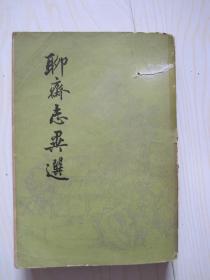 聊齋志異選